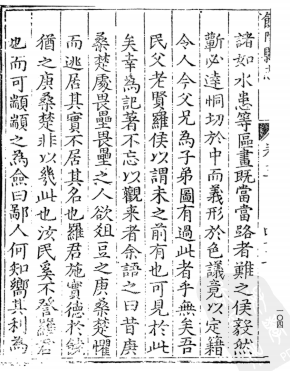 諸如水患等區畫既當當路者難之侯毅然
斬必達恫切於中而義形於色議竟以定籍
令人今父兄為子弟圖有過此者乎無矣吾
民父老賢羅侯以謂未之前有也可見於此
矣幸為記著不忘以觀來者余語之曰昔庚
桑楚處畏壘畏壘之人欲俎豆之庚桑楚懼
而逃居其實不居其名也羅君施實德於饒
猶之庚桑楚非以幾此也汝民奚不登羅君
也而可顓顓之為僉曰鄙人何知嚮其利為
一〇四